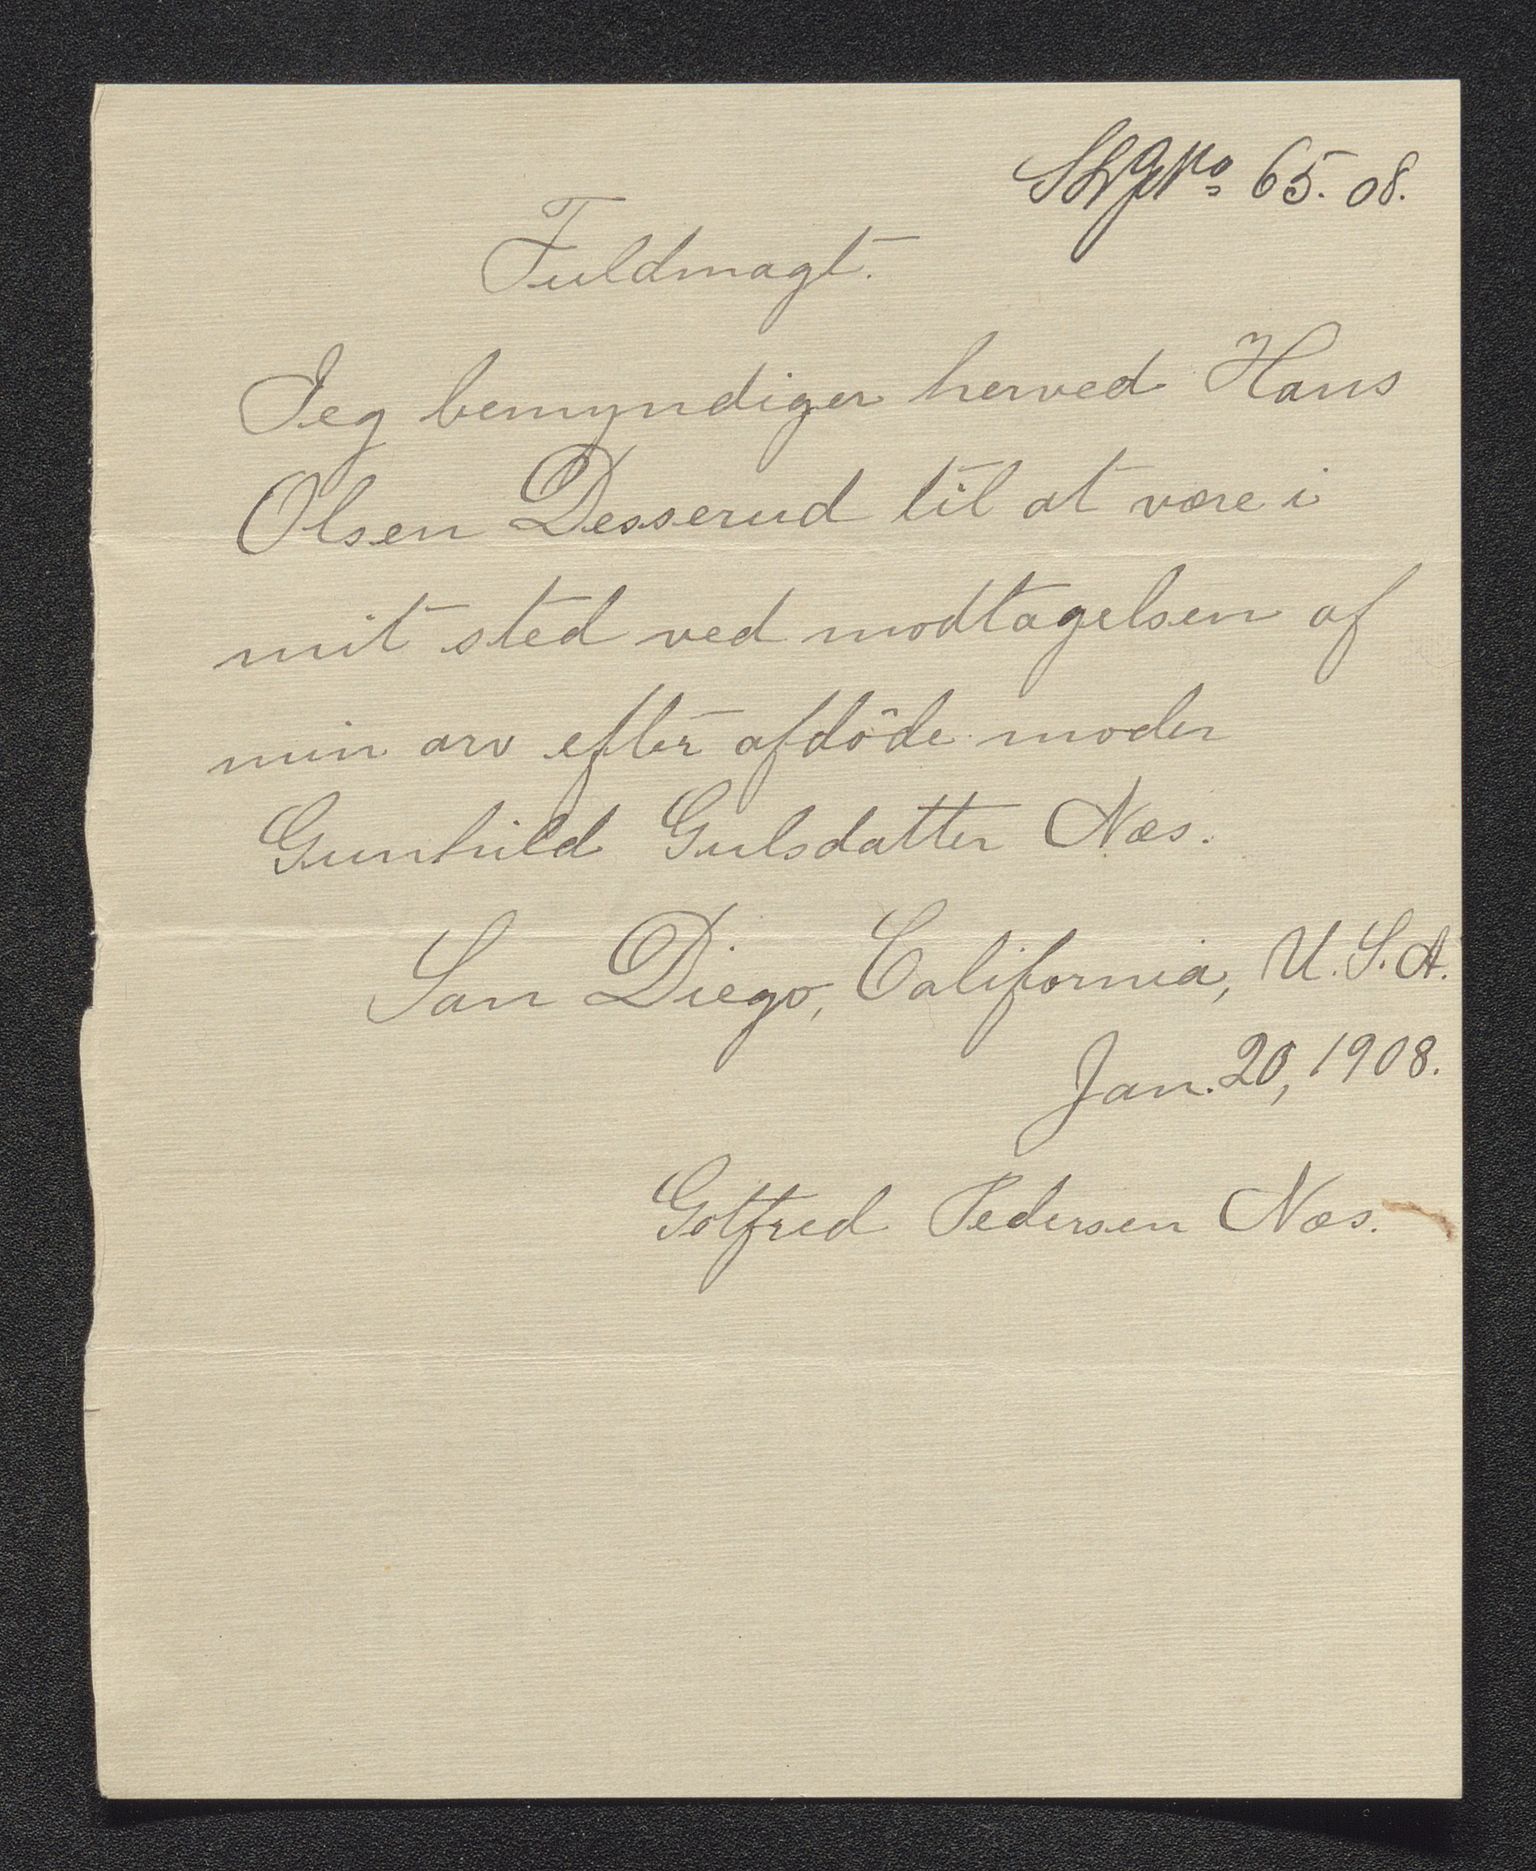 65. 08.
Fuldmagt.
Jeg bemyndiger herved Hans
Olsen Desserud til at være i
mit sted ved modtagelsen af
min arv efter afdöde moder
Gunhild Gulsdatter Næs.
San Diego, California, U.S.A.
Jan. 20, 1908.
Gotfred Pedersen Næs.